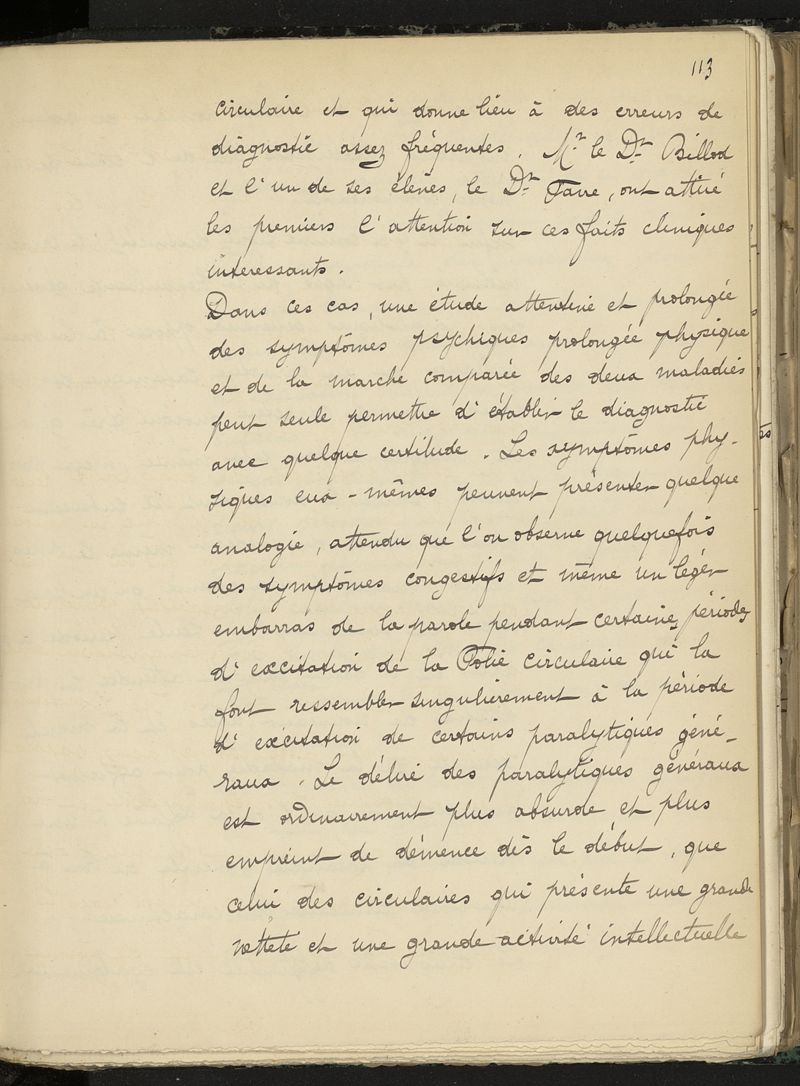 113
circulaire et qui donne lieu à des erreurs de
diagnostic assez fréquentes. Mr. le Dr. Billod
et l'un de ses élèves, le Dr. Farre, ont attiré
les premiers l'attention sur ces faits cliniques
interessants.
Dans ces cas, une étude attentive et prolongée
des symptômes psychiques prolongée physique
et de la marche comparée des deux maladies
peut seule permettre d'établir le diagnostic
avec quelque certitude. Les symptômes phy-
siques eux-mêmes peuvent présenter quelque
analogie, attendu que l'on observe quelquefois
des symptômes congestifs et même un léger
embarras de la parole pendant certaines périodes
d'excitation de la Folie circulaire qui la
font ressembler singulièrement à la période
d'excitation de certains paralytiques géné-
raux. Le délire des paralytiques généraux
est ordinairement plus absurde et plus
empreint de démence dès le début, que
celui des circulaires qui présente une grande
netteté et une grande activité intellectuelle